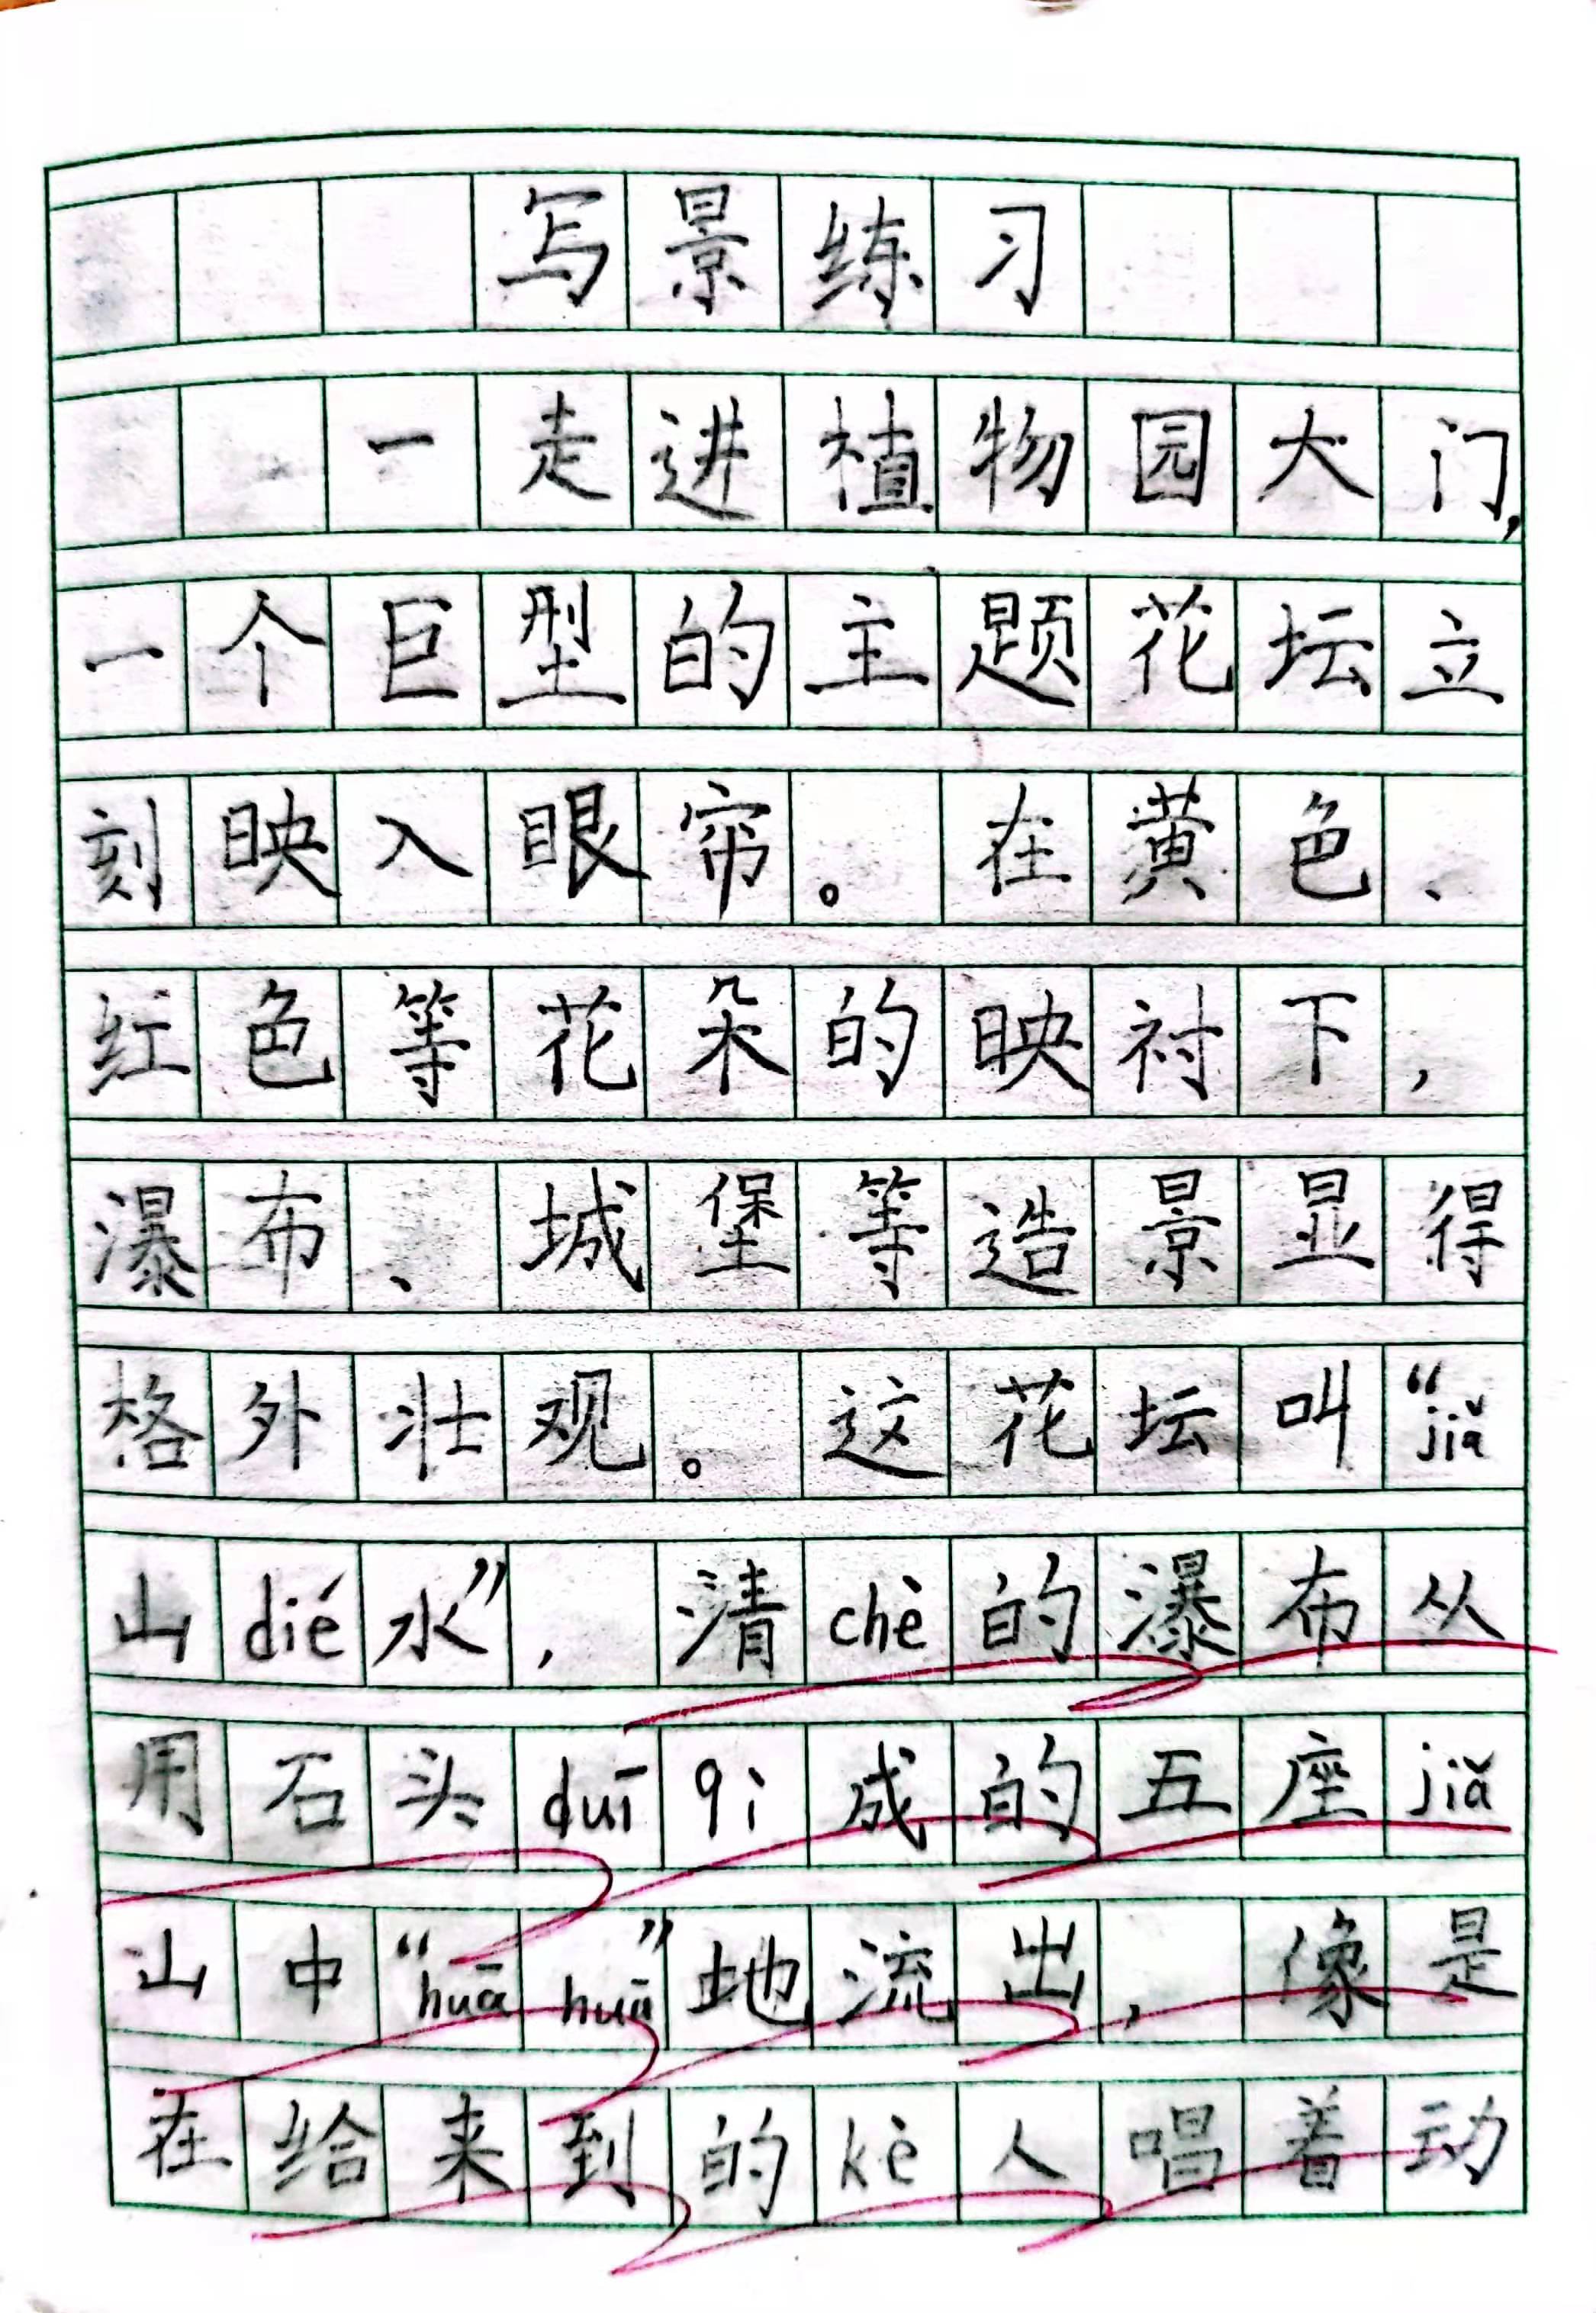 写景练习
一走进植物园大门，
一个巨型的主题花坛立
刻映入眼帘。在黄色、
红色等花朵的映衬下，
瀑布、城堡等造景显得
格外壮观。这花坛叫“jiǎ
山dié水”，清chè的瀑布从
用石头duī qì成的五座jiǎ
山中“huā huā”地流出，像是
在给来到的kè人唱着动